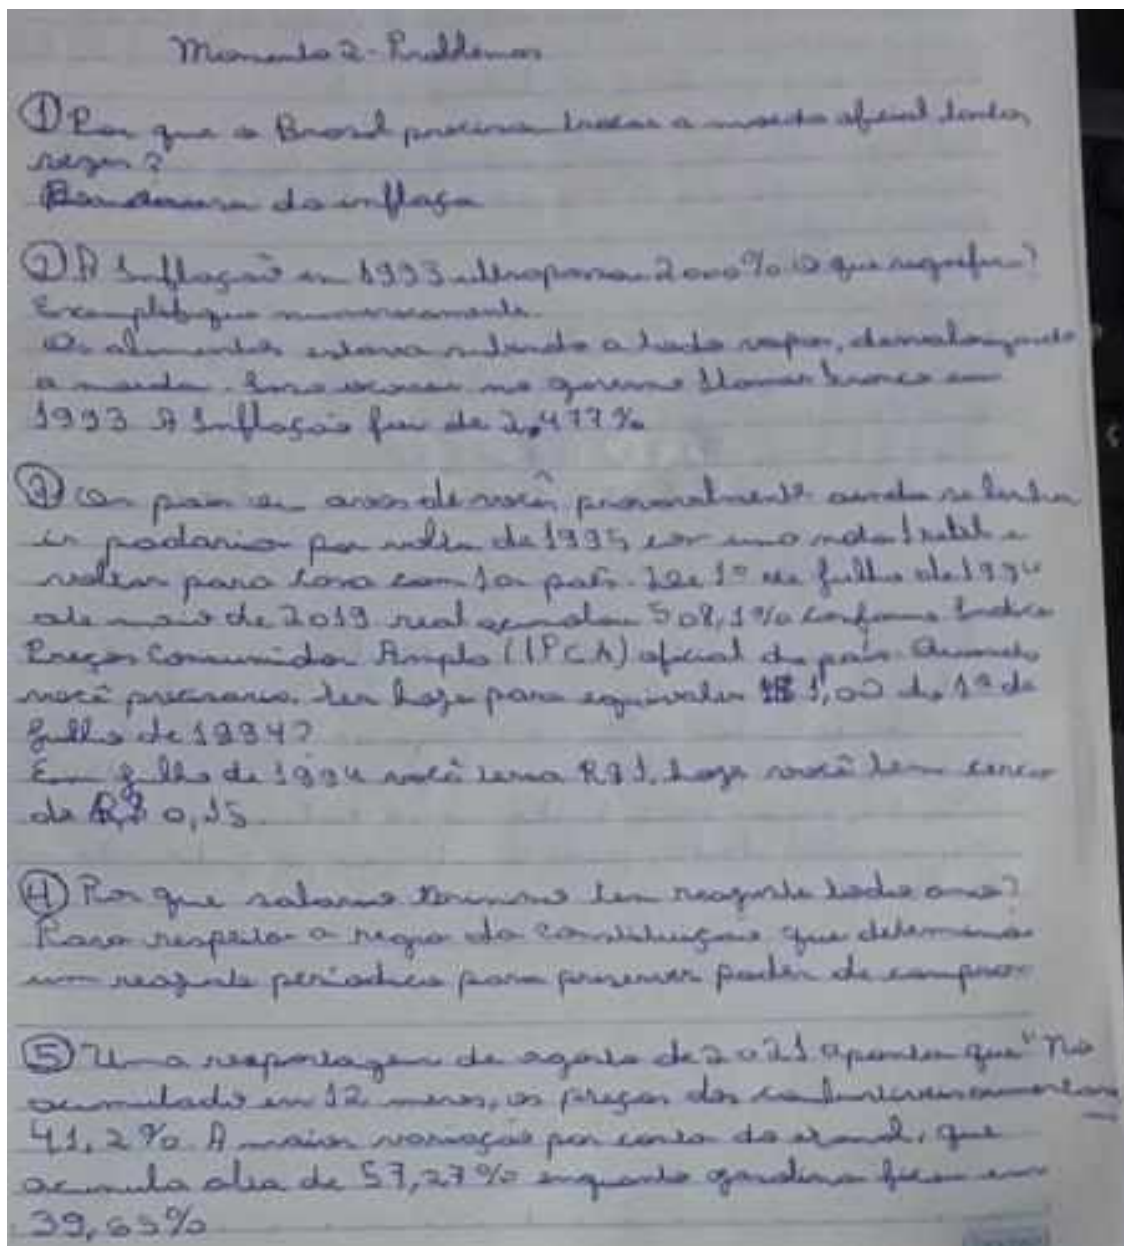 Momento 2 - Problemas
① Por que o Brasil precisou trocar a moeda oficial tantas
vezes?
da inflaça
② A Inflação em 1993 ultrapassou 2000% O que significa?
Exemplifique numericamente.
Os alimentos estava subindo a todo vapor, desvalorizando
a moeda. Isso ocorreu no governo Itamar franco em
1993 A Inflação foi de 2.477%
③ pais ou avós de você provavelmente ainda se lembra
ir padaria por volta de 1995 com uma nota 1 real e
voltar para casa com 10 pais. De 1º de julho de 1994
até maio de 2019 real acumulou 508,1% conforme Indice
Preços Consumidor Amplo (IPCA) oficial do país. Quanto
você precisaria ter hoje para equivaler 1,00 de 1º de
julho de 1994?
Em julho de 1994 você tinha R$1, hoje você tem cerca
de R$ 0,15
④ Por que salario minimo tem reajuste todo ano?
Para respeitar a regra da constituição que determina
um reajuste periodico para preservar poder de compra
⑤ Uma reportagem de agosto de 2021 aponta que "No
acumulado em 12 meses, os preços dos combustiveis aumentaram
41,2%. A maior variação por conta do etanol, que
acumula alta de 57,27% enquanto gasolina ficou em
39,65%